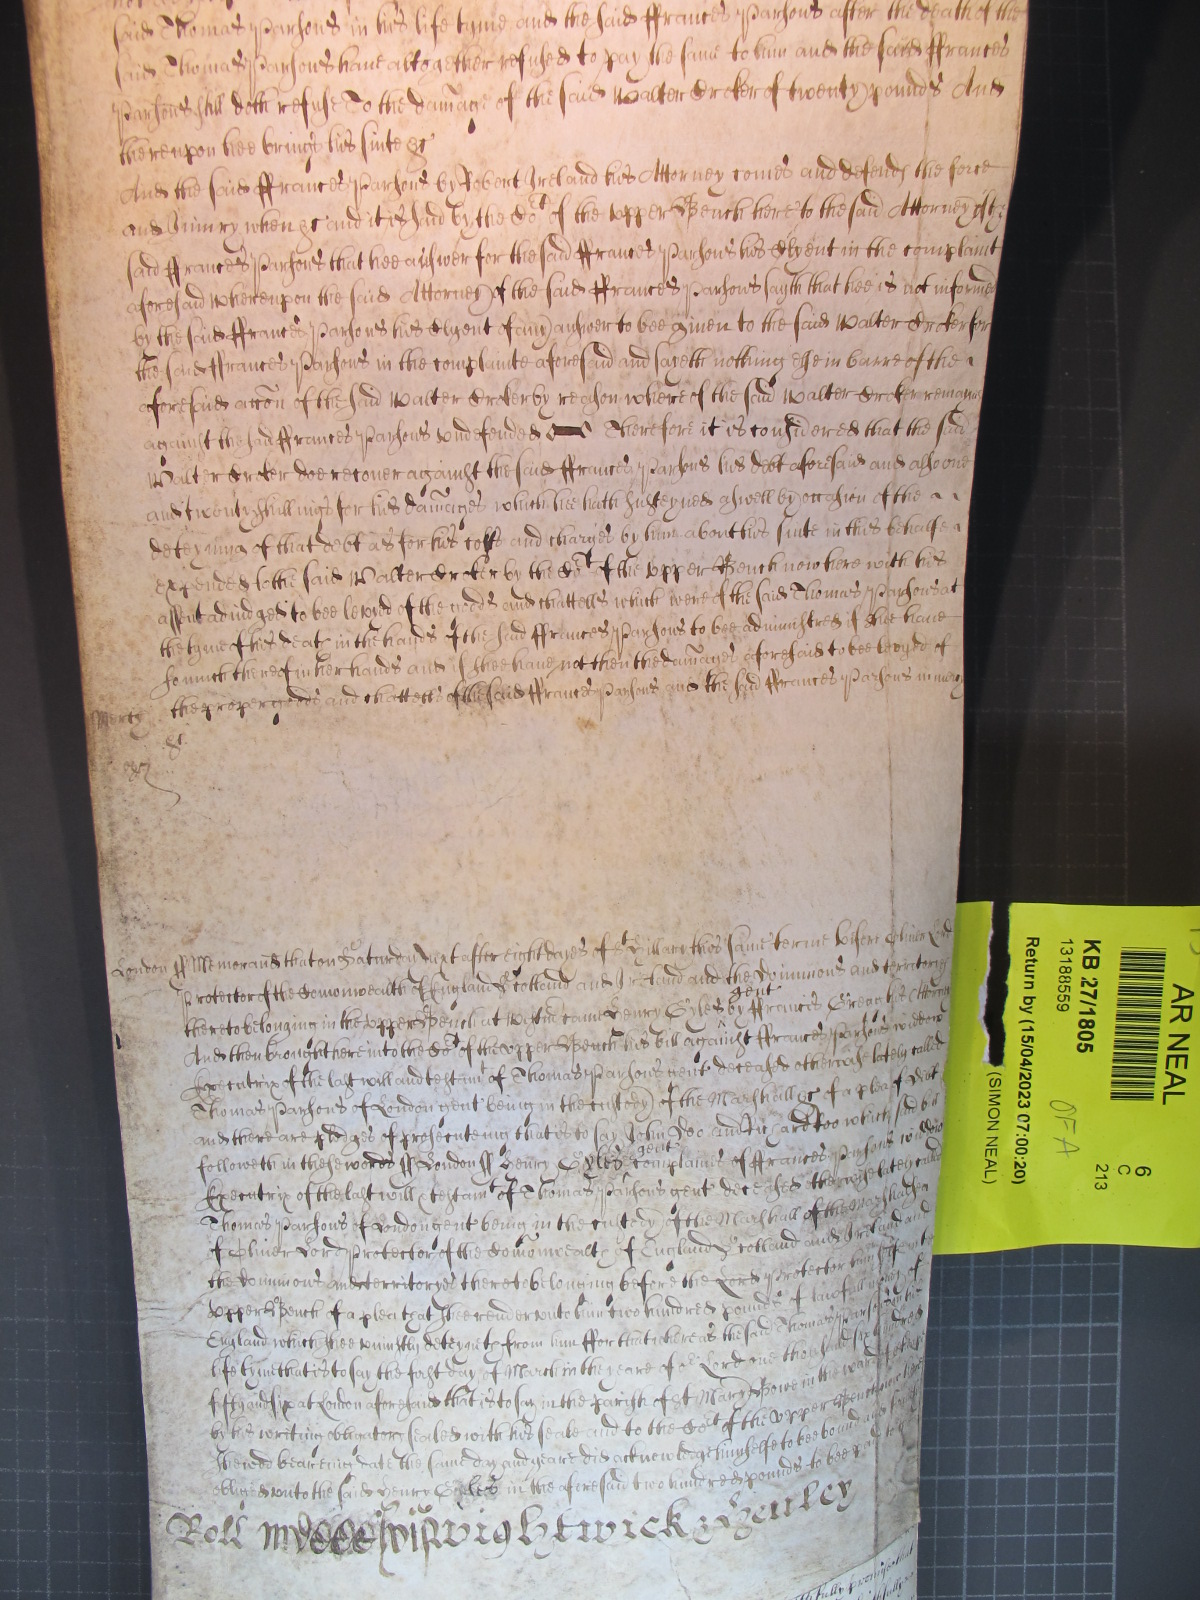 said Thomas Parsons in his life tyme and the said ffrances Parsons after the death of the
said Thomas Parsons have altogether refused to pay the same to him and the said ffrances
Parsons still doth refuse To the damage of the said Walter Croker of twenty pounds And
thereupon hee brings his suite &c
And the said ffrances Parsons by Robert Ireland his Attorney comes and defends the force
and Iniury when &c and it is said by the Cort of the upper Bench here to the said Attorney of the
said ffrances Parsons that hee answer for the said ffrances Parsons his Clyent in the complaint
aforesaid whereupon the said Attorney of the said ffrances Parsons sayth that hee is not informed
by the said ffrances Parsons his Clyent of any answer to bee given to the said Walter Croker for
the said ffrances Parsons in the complainte aforesaid and saieth nothing else in barre of the
aforesaid accon of the said Walter Croker by reason whereof the said Walter Croker remaynes
against the said ffrances Parsons undefended Therefore it is considered that the said
Walter Croker doe recover against the said ffrances Parsons his debt aforesaid and also one
and twenty shillings for his damages which hee hath susteyned aswell by occasion of the
deteyning of that debt as for his costs and charges by him about his suite in this behalfe
expended to the said Walter Croker by the Cort of the upper Bench now here with his
assent adiudged to bee levied of the goods and chattells which were of the said Thomas Parsons at
the tyme of his death in the hands of the said ffrances Parsons to bee administred if shee have
so much thereof in her hands and if shee have not then the damages aforesaid to bee levyed of
the proper goods and chattells of the said ffrances Parsons And the said ffrances Parsons in mercy
Mercy
&c
London ss Memorand that on Saturday next after eight dayes of St Hillary this same terme before Oliver Lord
Protector of the Comonwealth of England Scotland and Ireland and the Dominions and territoryes
thereto belonging in the upper Bench at Westm came Henry Gyles gent by ffrancis Greene his Attorney
And then brought here into the Cort of the upper Bench his bill against ffrances Parsons widdow
Executrix of the last will and testamt of Thomas Parsons gent deceased otherwise lately called
Thomas Parsons of London gent being in the custody of the Marshall &c of a plea of debt
and there are pledges of prosecuteing that is to say John Doo and Richard Roo which said bill
followeth in these words ss London ss Henry Gyles gent complaines of ffrances Parsons widdow
Executrix of the last will & testamt of Thomas Parsons gent deceased otherwise lately called
Thomas Parsons of London gent being in the custody of the Marshall of the Marshalsea
of Oliver Lord Protector of the Comonwealth of England Scotland and Ireland and
the Dominions and territoryes thereto belonging before the Lord Protector himselfe in the
upper Bench of a plea that shee render unto him two hundred pounds of lawfull money of
England which shee uniustly deteyneth from him ffor that whereas the said Thomas Parsons in his
life tyme that is to say the first day of March in the yeare of or Lord one thousand six hundred
fifty and six at London aforesaid that is to say in the parish of St Mary Bowe in the ward of Cheape
by his writing obligatory sealed with his seale and to the Cort of the upper Bench now here
shewed beareing date the same day and yeare did acknowledge himselfe to bee bound and firmly
obliged unto the said Henry Gyles in the aforesaid two hundred pounds to bee paid to the
Roll Wightwick & Henley
AR NEAL
KB 27/1805
13188559
(SIMON NEAL)
Return by (15/04/2023 07:00:20)
OFA
6
C
213